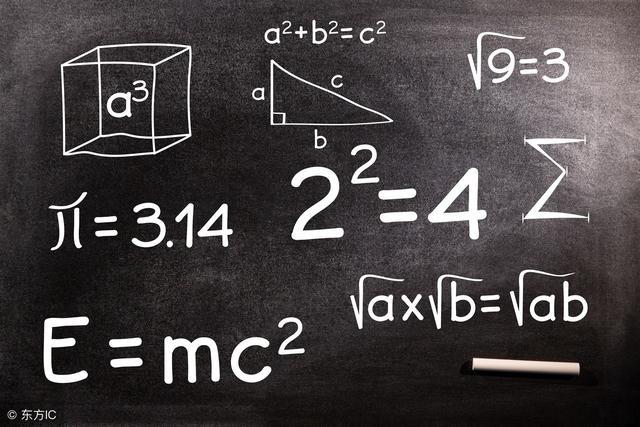 a²+b²=c²
√9=3
a³
a
c
b
2²=4
Σ
π=3.14
√ax√b=√ab
E=mc²
© 东方IC